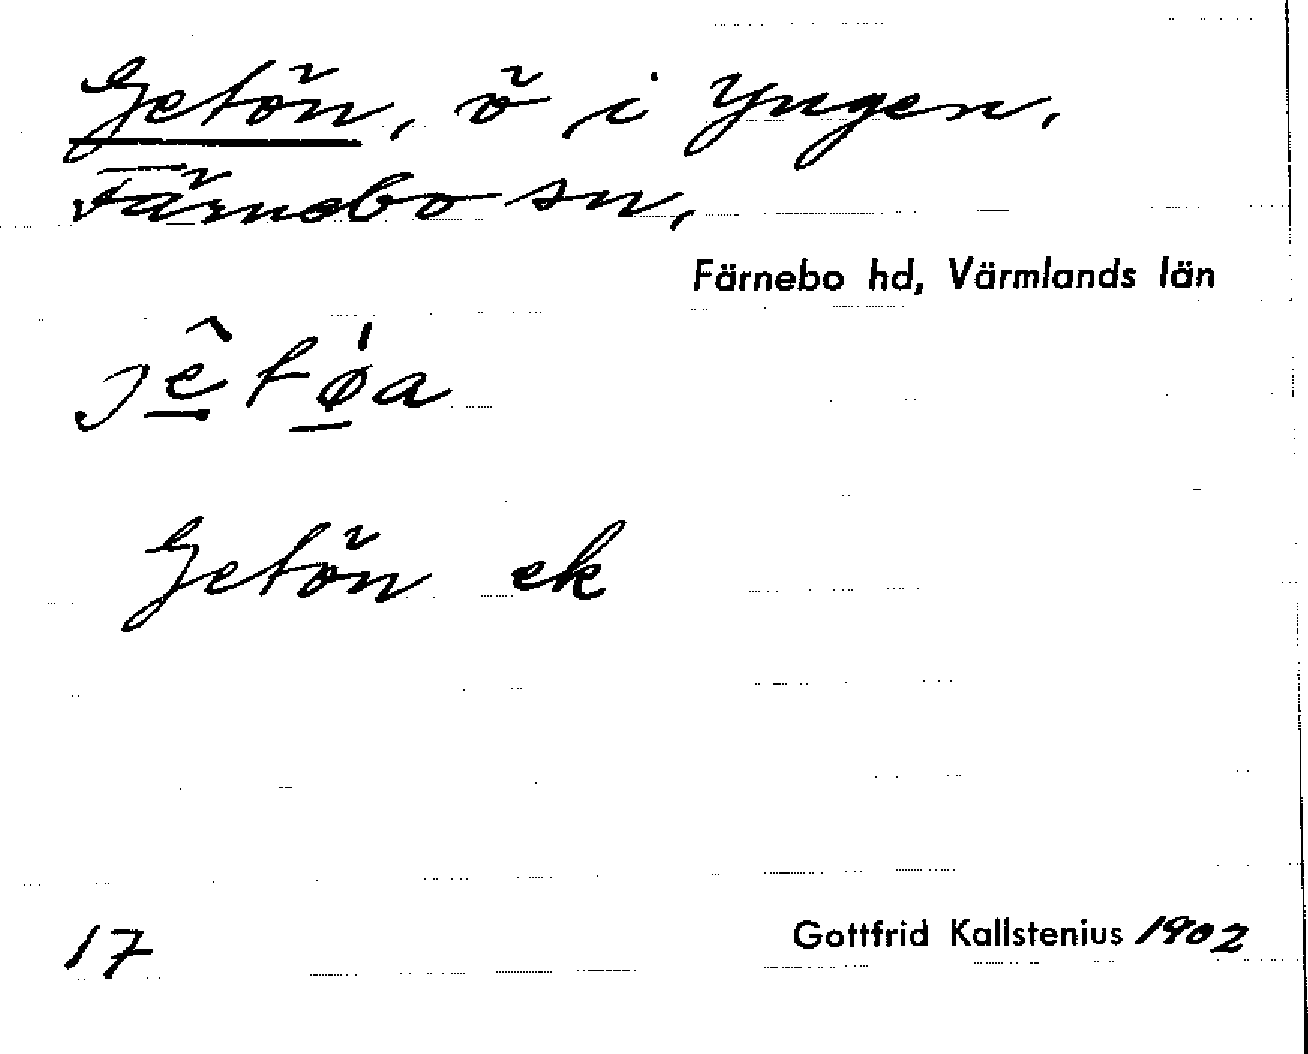 Getön, ö i Yngen,
Färnebo sn,
Färnebo hd, Värmlands län
jê̱tǿ̱a
Getön ek
17
Gottfrid Kallstenius 1902